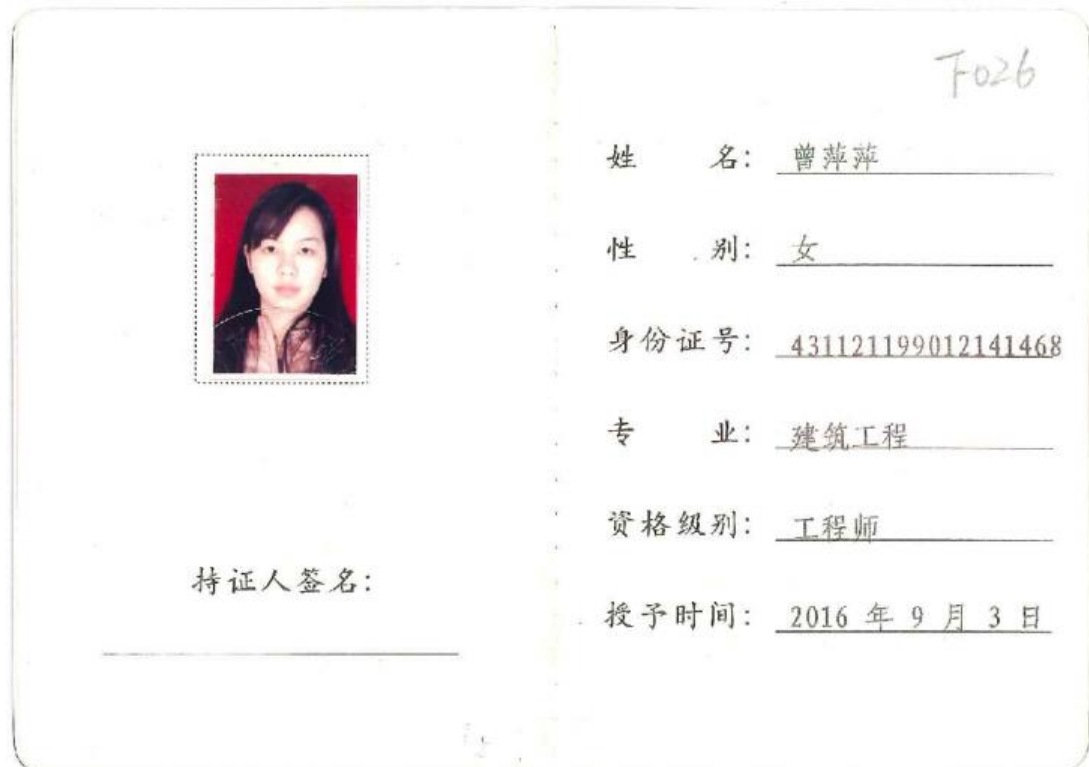 下026
姓 名: 曾萍萍
性 别: 女
身份证号: 431121199012141468
专 业: 建筑工程
资格级别: 工程师
持证人签名:
授予时间: 2016 年 9 月 3 日